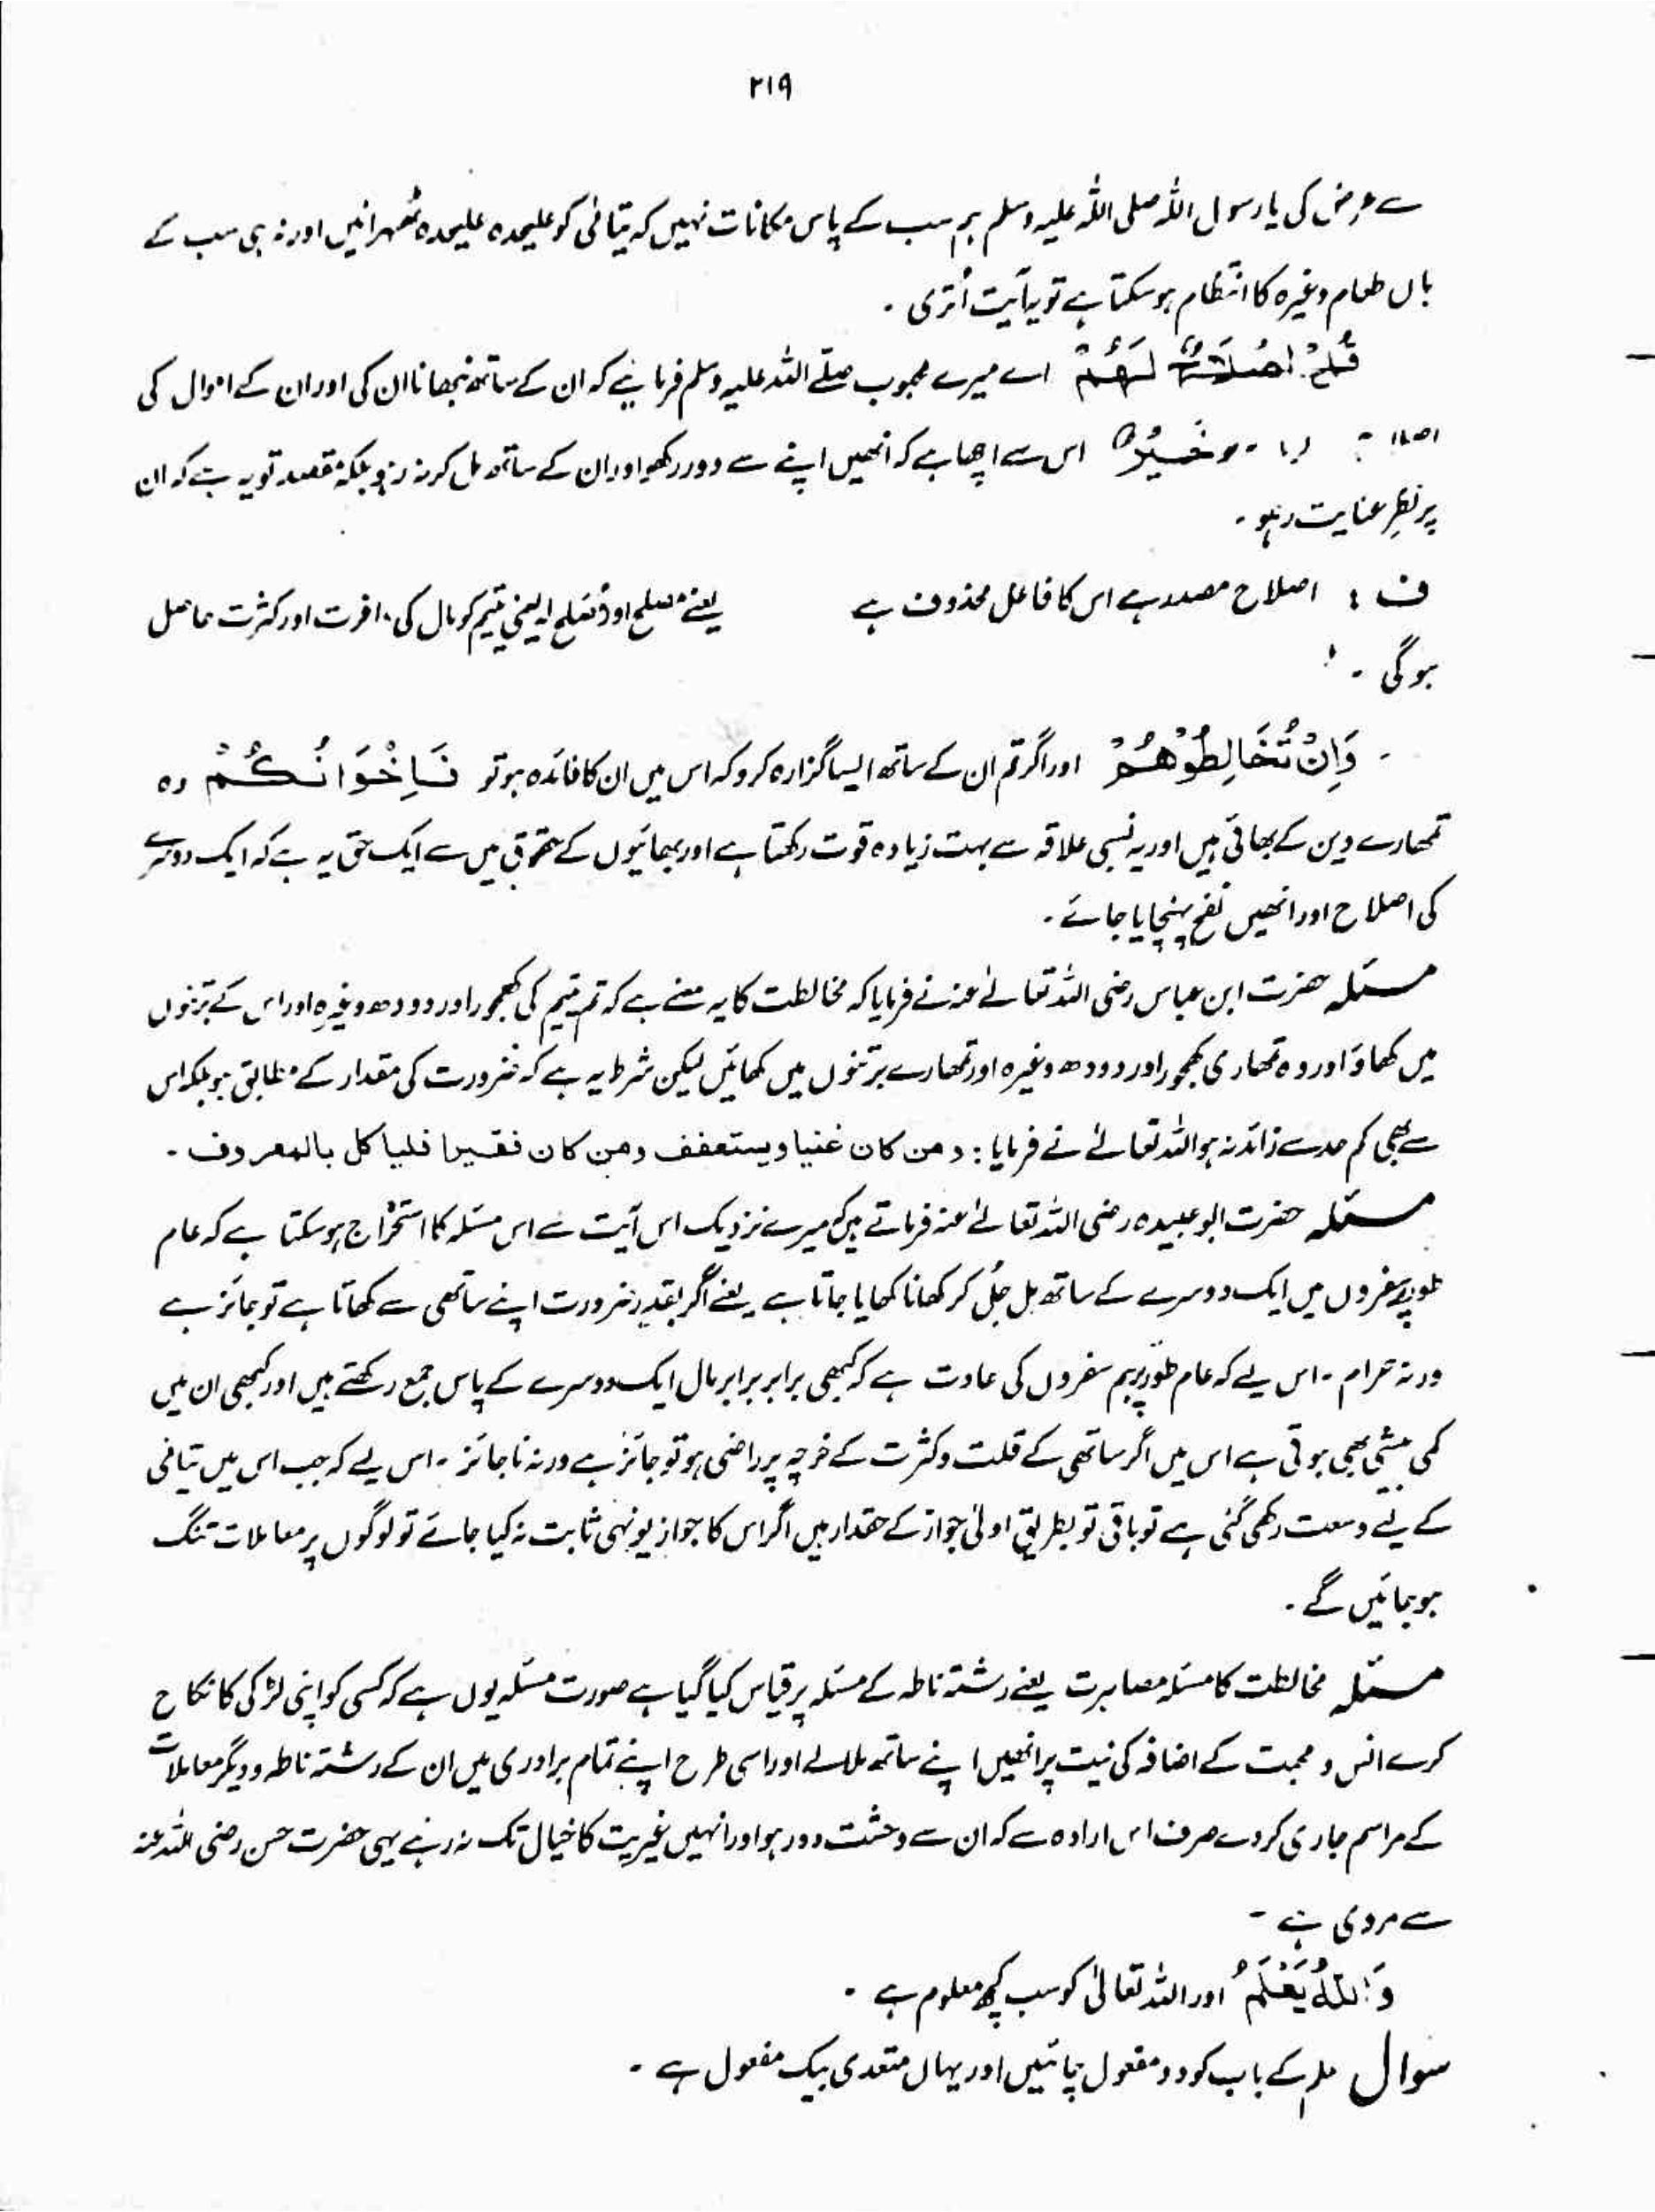 ۲۱۹
سے عرض کی یا رسول اللہ صلی اللہ علیہ وسلم ہم سب کے پاس مکانات نہیں کہ یتامٰی کو علیحدہ علیحدہ ٹھہرائیں اور نہ ہی سب کے
ہاں طعام وغیرہ کا انتظام ہوسکتا ہے تو یہ آیت اُتری ۔
قُلْ اِصْلَاحٌ لَّهُمْ اے میرے محبوب صلّے اللہ علیہ وسلم فرمائیے کہ ان کے ساتھ نبھانا ان کی اور ان کے اموال کی
خَيْرٌ اس سے اچھا ہے کہ انھیں اپنے سے دور رکھو اور ان کے ساتھ مل کر نہ رہو بلکہ مقصد تو یہ ہے کہ ان
پر نظرِ عنایت رہو ۔
ف : اصلاح مصدر ہے اس کا فاعل محذوف ہے یعنے مصلح اور مُصلح لہ یعنی یتیم کو مال کی وافرت اور کثرت حاصل
ہوگی ۔
وَاِنْ تُخَالِطُوْهُمْ اور اگر تم ان کے ساتھ ایسا گزارہ کرو کہ اس میں ان کا فائدہ ہو تو فَاِخْوَانُكُمْ وہ
تمھارے دین کے بھائی ہیں اور یہ نسبی علاقہ سے بہت زیادہ قوت رکھتا ہے اور بھائیوں کے حقوق میں سے ایک حق یہ ہے کہ ایک دوسرے
کی اصلاح اور انھیں نفع پہنچایا جائے ۔
مسئلہ حضرت ابن عباس رضی اللہ تعالےٰ عنہ نے فرمایا کہ مخالطت کا یہ معنے ہے کہ تم یتیم کی کھجور اور دودھ وغیرہ اور اس کے برتنوں
میں کھاؤ اور وہ تمھاری کھجور اور دودھ وغیرہ اور تمھارے برتنوں میں کھائیں لیکن شرط یہ ہے کہ ضرورت کی مقدار کے مطابق ہو بلکہ اس
سے بھی کم حد سے زائد نہ ہو اللہ تعالےٰ نے فرمایا : ومن كان غنيا ويستعفف ومن كان فقيرا فلياكل بالمعروف ۔
مسئلہ حضرت ابو عبیدہ رضی اللہ تعالےٰ عنہ فرماتے ہیں کہ میرے نزدیک اس آیت سے اس مسئلہ کا استخراج ہوسکتا ہے کہ عام
طور پر سفروں میں ایک دوسرے کے ساتھ مل جُل کر کھانا کھایا جاتا ہے یعنے اگر بقدرِ ضرورت اپنے ساتھی سے کھاتا ہے تو جائز ہے
ورنہ حرام ۔ اس لیے کہ عام طور پر ہم سفروں کی عادت ہے کہ کبھی برابر برابر مال ایک دوسرے کے پاس جمع رکھتے ہیں اور کبھی ان میں
کمی بیشی بھی ہوتی ہے اس میں اگر ساتھی کے قلت و کثرت کے خرچہ پر راضی ہو تو جائز ہے ورنہ ناجائز ۔ اس لیے کہ جب اس میں یتامی
کے لیے وسعت رکھی گئی ہے تو باقی تو بطریق اولیٰ جواز کے حقدار ہیں اگر اس کا جواز یونہی ثابت نہ کیا جائے تو لوگوں پر معاملات تنگ
ہوجائیں گے ۔
مسئلہ مخالطت کا مسئلہ مصاہرت یعنے رشتہ ناطہ کے مسئلہ پر قیاس کیا گیا ہے صورت مسئلہ یوں ہے کہ کسی کو اپنی لڑکی کا نکاح
کرے انس و محبت کے اضافہ کی نیت پر انھیں اپنے ساتھ ملالے اور اسی طرح اپنے تمام برادری میں ان کے رشتہ ناطہ و دیگر معاملات
کے مراسم جاری کردے صرف اس ارادہ سے کہ ان سے وحشت دور ہو اور انہیں غیریت کا خیال تک نہ رہے یہی حضرت حسن رضی اللہ عنہ
سے مروی ہے ۔
وَاللّٰهُ يَعْلَمُ اور اللہ تعالیٰ کو سب کچھ معلوم ہے ۔
سوال علم کے باب کو دو مفعول چاہئیں اور یہاں متعدی بیک مفعول ہے ۔